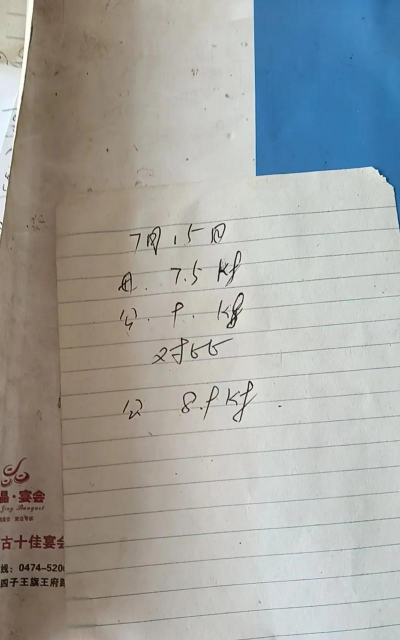 7月15日
母. 7.5 Kg
公. 9. Kg
对比
公 8.9 Kg.
晶·宴会
Jing Banquet
古十佳宴会
线: 0474-520
四子王旗王府